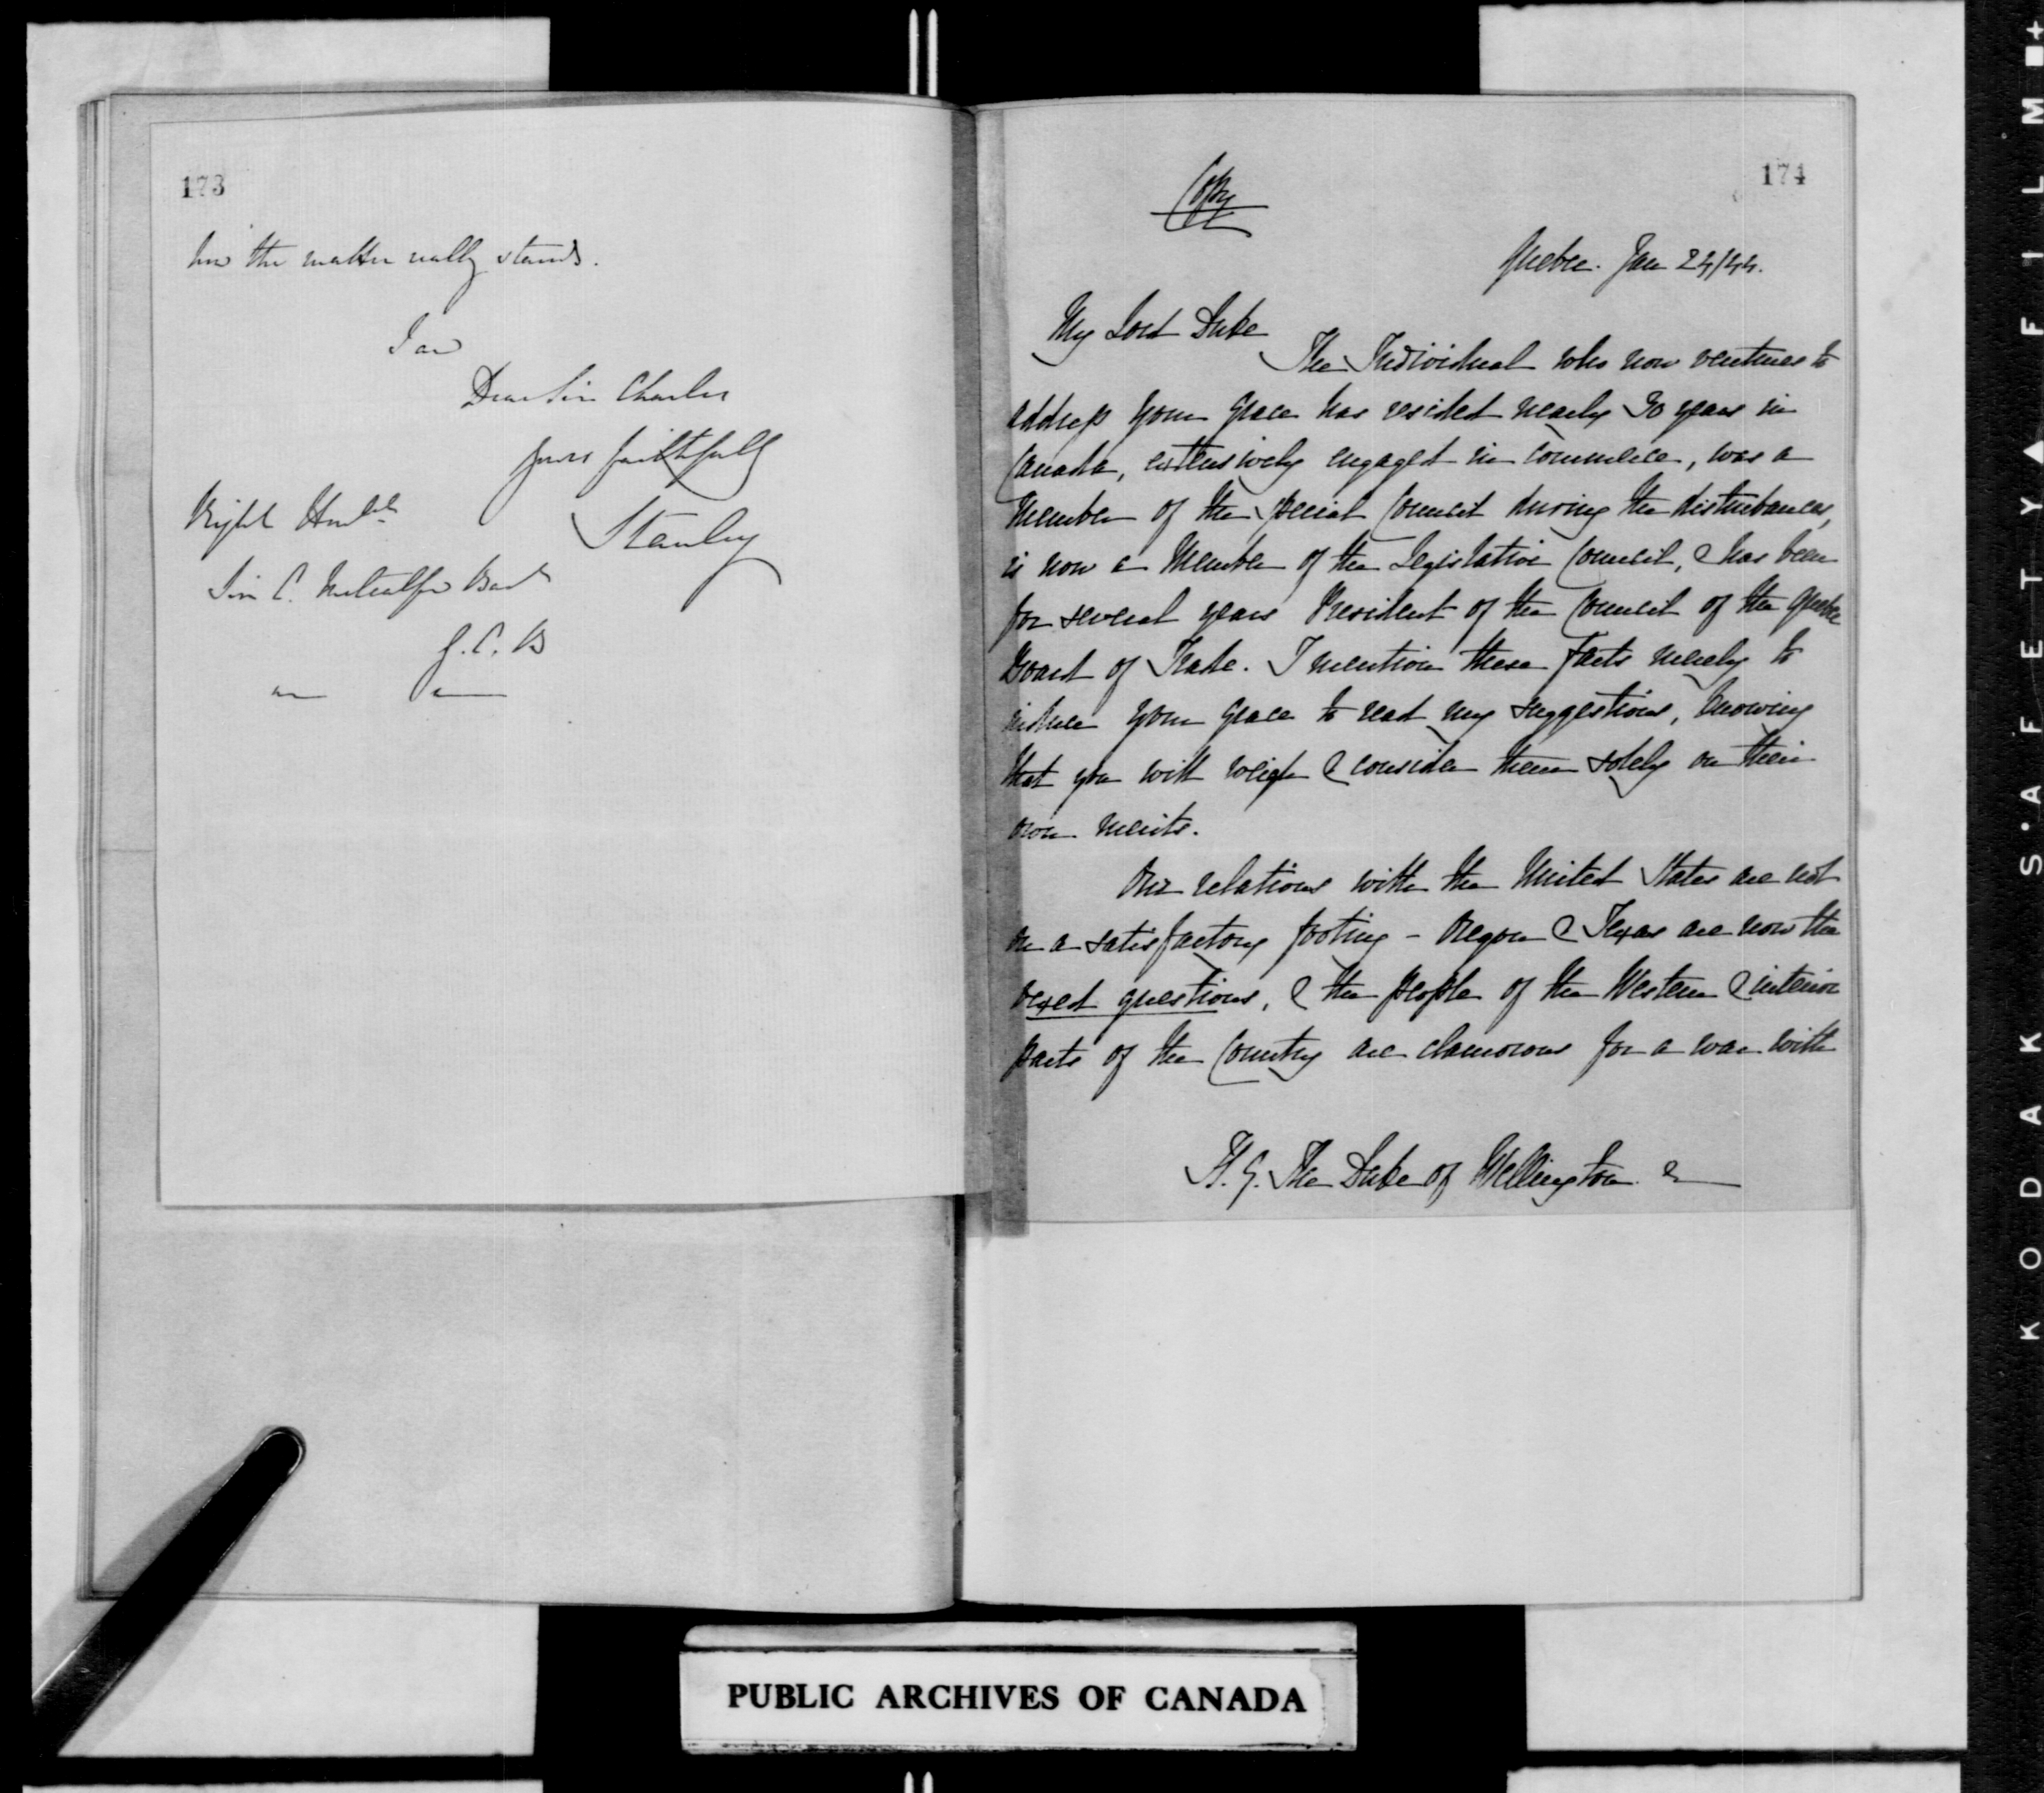 173
how the matter really stands.
I am
Dear Sir Charles
yours faithfully
Stanley
Right Honble
Sir C. Metcalfe Bart
G. C. B
174
Copy
Quebec. Jan 24/44.
My Lord Duke
The Individual who now ventures to
address Your Grace has resided nearly 30 years in
Canada, extensively engaged in Commerce, was a
Member of the Special Council during the disturbances,
is now a Member of the Legislative Council, & has been
for several years President of the Council of the Quebec
Board of Trade. I mention these facts merely to
induce Your Grace to read my suggestions, knowing
that you will weigh & consider them solely on their
own merits.
Our relations with the United States are not
on a satisfactory footing - Oregon & Texas are now the
vexed questions, & the people of the Western & interior
parts of the Country are clamorous for a war with
H. G. The Duke of Wellington. &
PUBLIC ARCHIVES OF CANADA
KODAK S·AFETY▲ FILM ■+